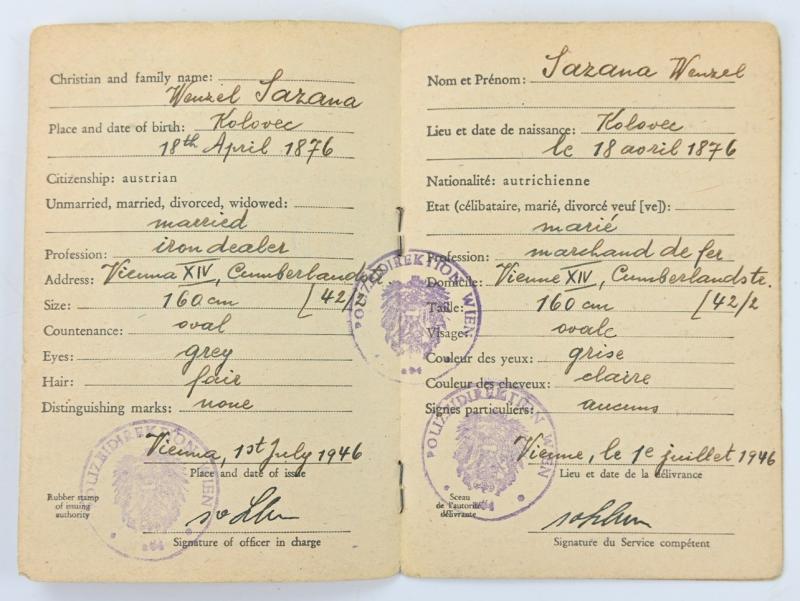 Christian and family name:
Wenzel Sazana
Place and date of birth: Kolovec
18th April 1876
Citizenship: austrian
Unmarried, married, divorced, widowed:
married
Profession: irondealer
Address: Vienna XIV, Cumberlandstr.
Size: 160 cm [42/2
Countenance: oval
Eyes: grey
Hair: fair
Distinguishing marks: none
Vienna, 1st July 1946
Place and date of issue
Rubber stamp
of issuing
authority
Signature of officer in charge
POLIZEIDIREKTION WIEN
Nom et Prénom: Sazana Wenzel
Lieu et date de naissance: Kolovec
le 18 avril 1876
Nationalité: autrichienne
Etat (célibataire, marié, divorcé veuf [ve]):
marié
Profession: marchand de fer
Domicile: Vienne XIV, Cumberlandstr.
Taille: 160 cm [42/2
Visage: ovale
Couleur des yeux: grise
Couleur des cheveux: claire
Signes particuliers: aucuns
Vienne, le 1e juillet 1946
Lieu et date de la délivrance
Sceau
de l'autorité
délivrante
Signature du Service compétent
POLIZEIDIREKTION WIEN
POLIZEIDIREKTION WIEN